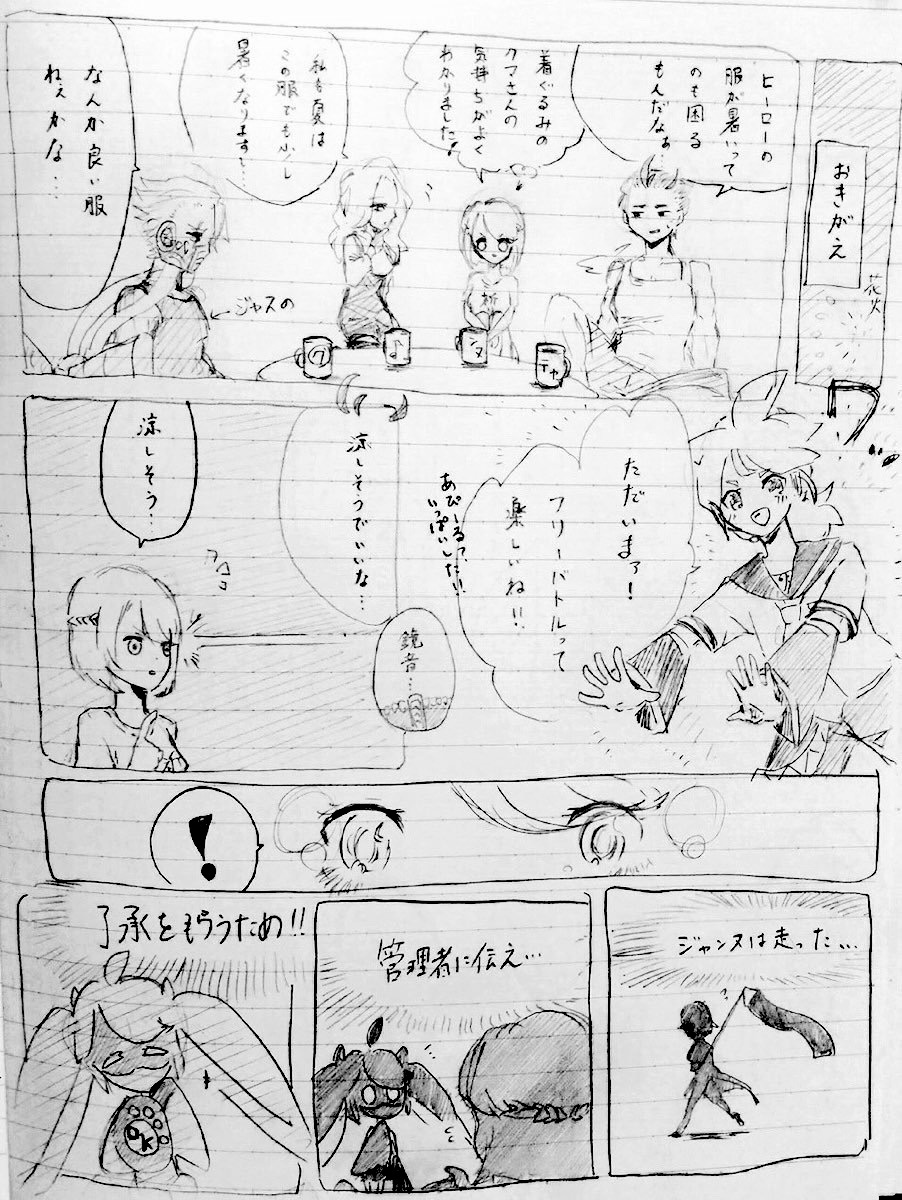 おきがえ
花火
ヒーローの
服が暑いって
のも困る
もんだなぁ…
着ぐるみの
クマさんの
気持ちがよく
わかりました!
私も夏は
この服でも少し
暑くなります…
なんか良い服
ねぇかな…
ジャスの
祈
ク
♪
ジャ
テャ
ただいまァ!
フリーバトルって
楽しいね!!
あぴーるァ、
いっぱいした!!
涼しそうでいいな…
鏡音…
涼しそう…
!
ジャンヌは走った…
管理者に伝え…
了承をもらうため!!
OK